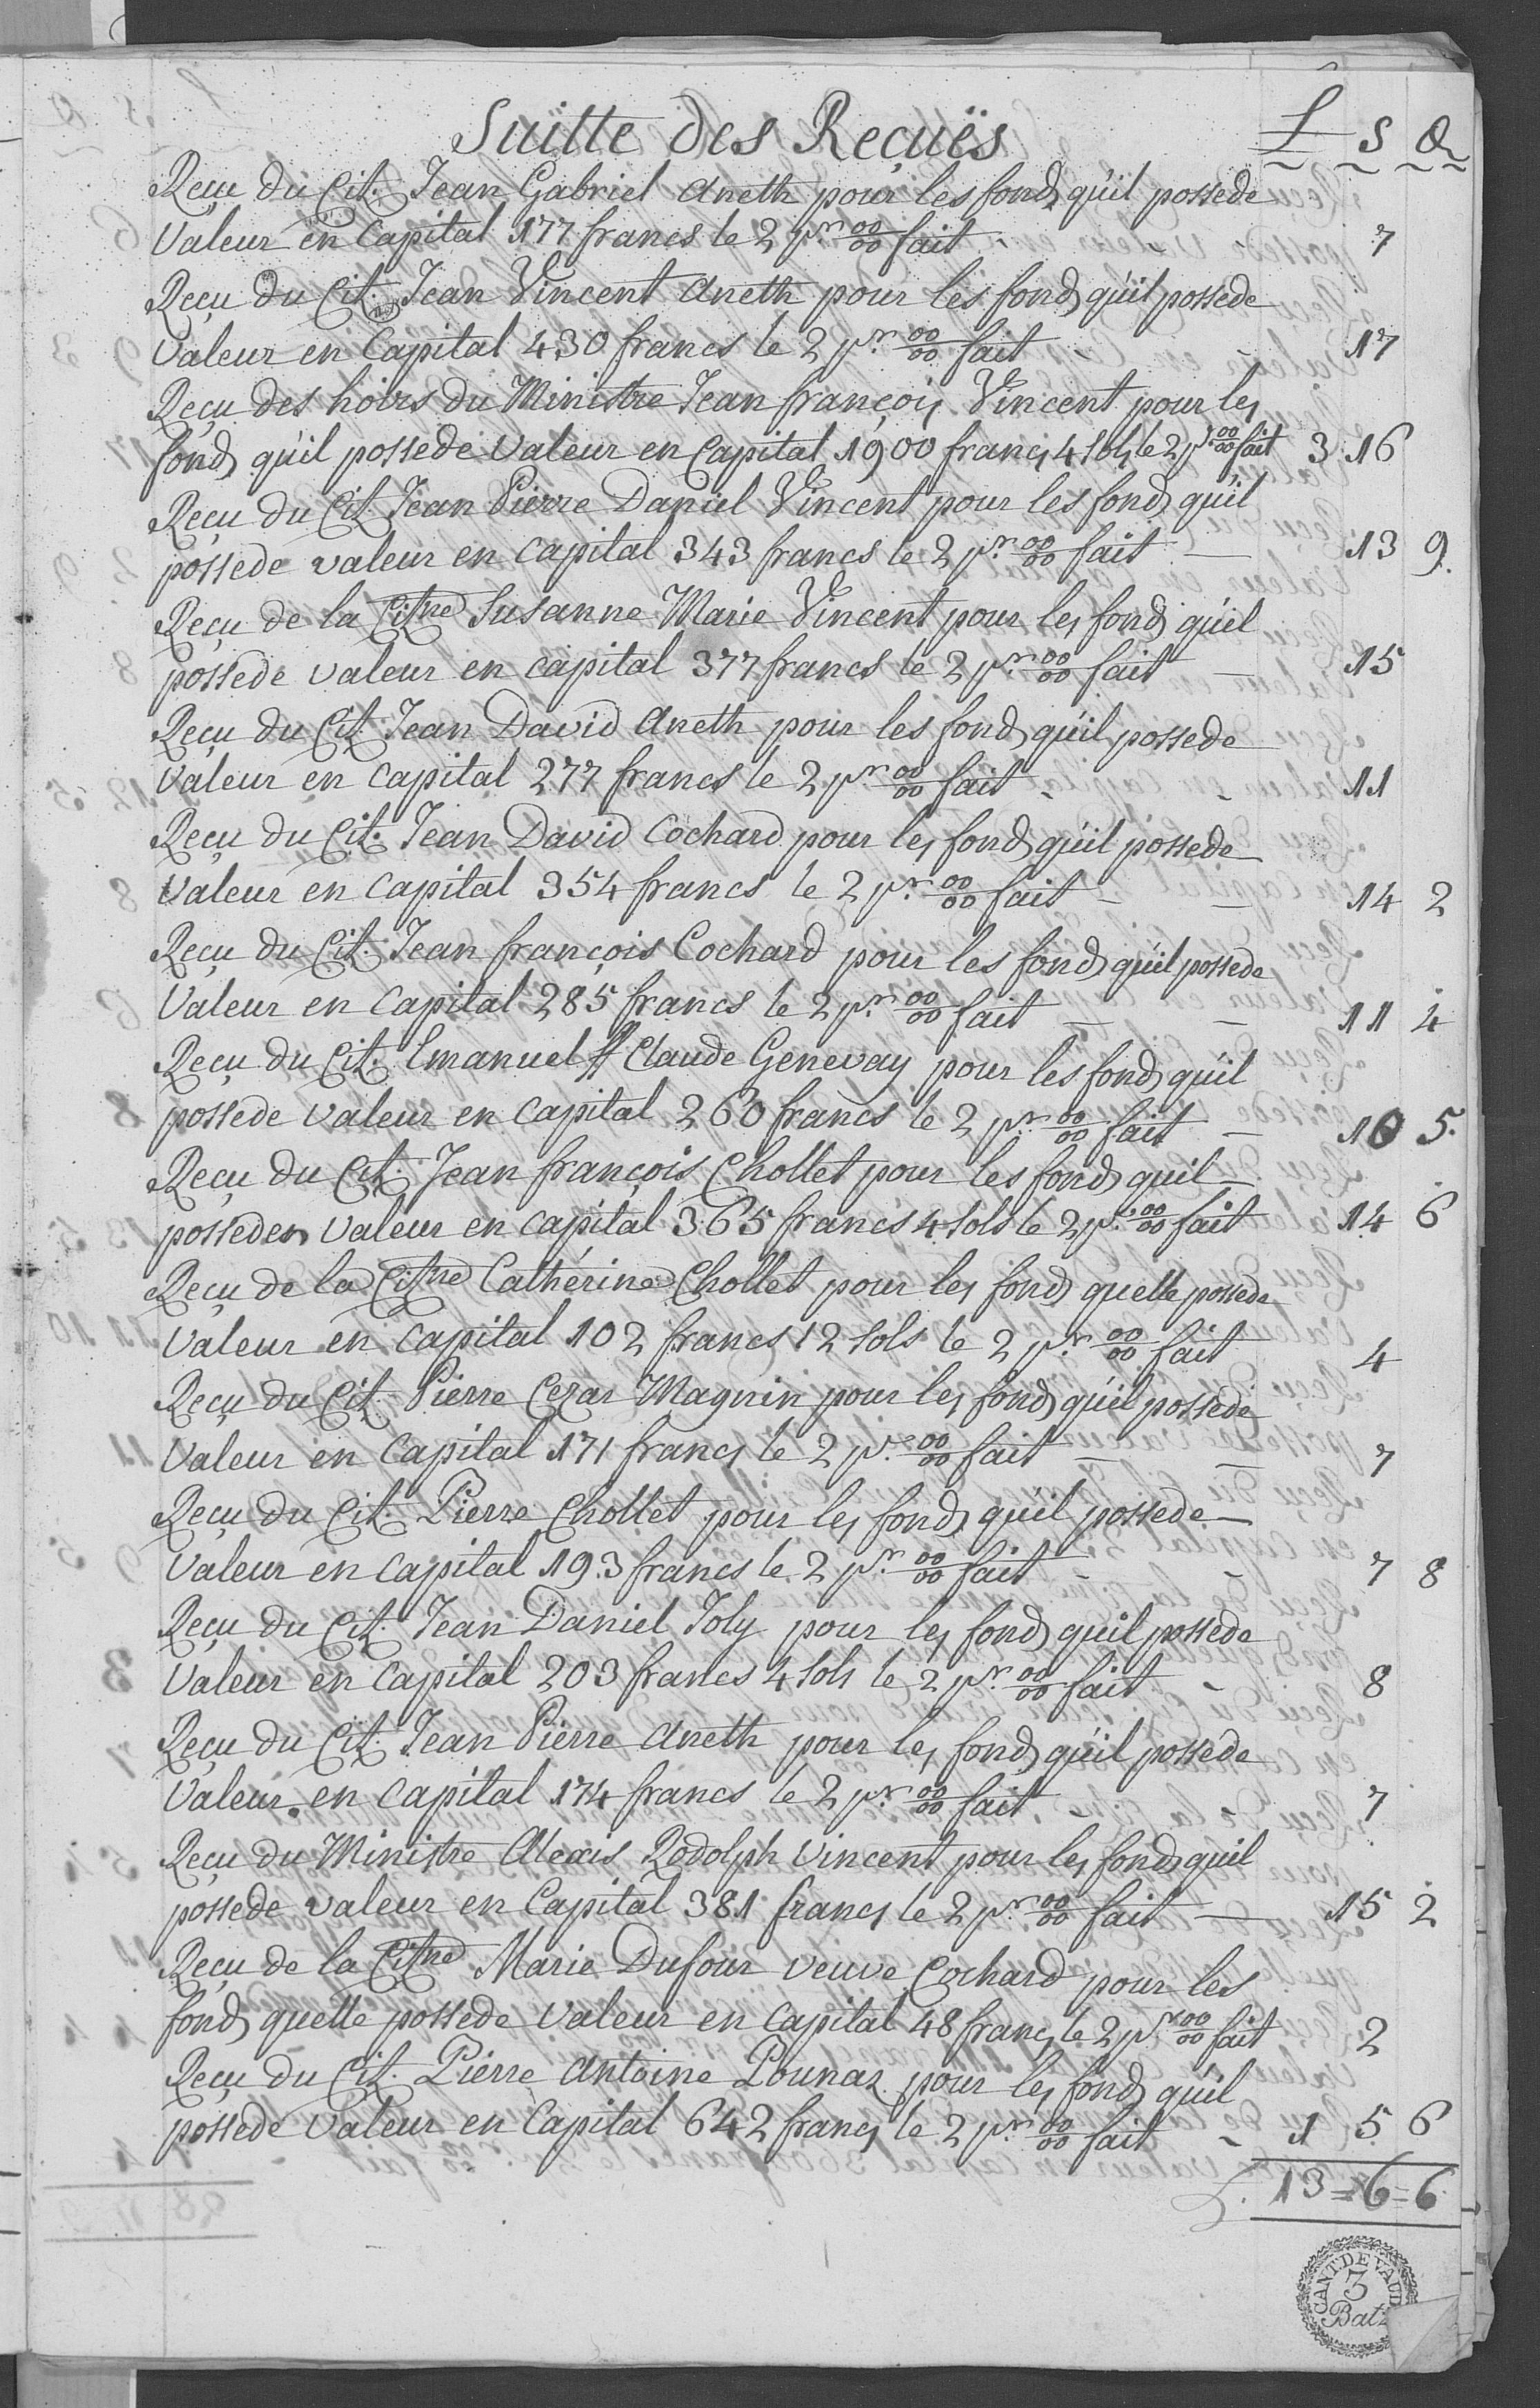 Suitte des Reçuës L S D
Reçu du Cit. Jean Gabriel Aneth pour les fonds qu'il possede
Valeur en Capital 177 francs le 2 pr 00/00 fait - - 7
Reçu du Cit. Jean Vincent Aneth pour les fonds qu'il possede
Valeur en Capital 430 francs le 2 pr. 00/00 fait - - 17
Reçu des hoirs du Ministre Jean françois Vincent pour les
fonds qu'il possede Valeur en Capital 1900 francs 4 sols le 2 pr 00/00 fait 3 16
Reçu du Cit. Jean Pierre Daniel Vincent pour les fonds qu'il
possede valeur en Capital 343 francs le 2 pr. 00/00 fait — 13 9.
Reçu de la Citne Susanne Marie Vincent pour les fonds qu'el
possede valeur en capital 377 francs le 2 pr. 00/00 fait — 15
Reçu du Cit. Jean David Aneth pour les fonds qu'il possede
valeur en capital 277 francs le 2 pr 00/00 fait - - 11
Reçu du Cit. Jean David Cochard pour les fonds qu'il possede
Valeur en capital 354 francs le 2 pr. 00/00 fait - - 14 2
Reçu du Cit. Jean françois Cochard pour les fonds qu'il possede
Valeur en Capital 285 francs le 2 pr. 00/00 fait — - 11 4
Reçu du Cit. Emanuel ff Claude Genevay pour les fonds qu'il
possede valeur en capital 260 francs le 2 pr. 00/00 fait — 10 5.
Reçu du Cit. Jean françois Chollet pour les fonds quil
possedes valeur en capital 365 francs 4 sols le 2 pr. 00/00 fait 14 6
Reçu de la Citne Cathérine Chollet pour les fonds quelle possede
Valeur en capital 102 francs 12 sols le 2 pr. 00/00 fait 4
Reçu du Cit. Pierre Cezar Magnin pour les fonds qu'il possede
Valeur en Capital 171 francs le 2 pr. 00/00 fait — — 7
Reçu du Cit. Pierre Chollet pour les fonds qu'il possede
Valeur en capital 193 francs le 2 pr. 00/00 fait - - 7 8
Reçu du Cit. Jean Daniel Joly pour les fonds qu'il possede
Valeur en Capital 203 francs 4 sols le 2 pr. 00/00 fait - 8
Reçu du Cit. Jean Pierre Aneth pour les fonds qu'il possede
Valeur en Capital 174 francs le 2 pr. 00/00 fait - - 7
Reçu du Ministre Alexis Rodolph Vincent pour les fonds quil
possede valeur en Capital 381 francs le 2 pr. 00/00 fait — 15 2
Reçu de la Citne Marie Dufour veuve Cochard pour les
fonds quelle possede Valeur en Capital 48 francs le 2 pr 00/00 fait 2
Reçu du Cit. Pierre Antoine Pounaz pour les fonds qu'il
possede Valeur en Capital 642 francs le 2 pr. 00/00 fait - 1 5 6
L. 13=6=6
CANT. DE VAUD
3
Batz